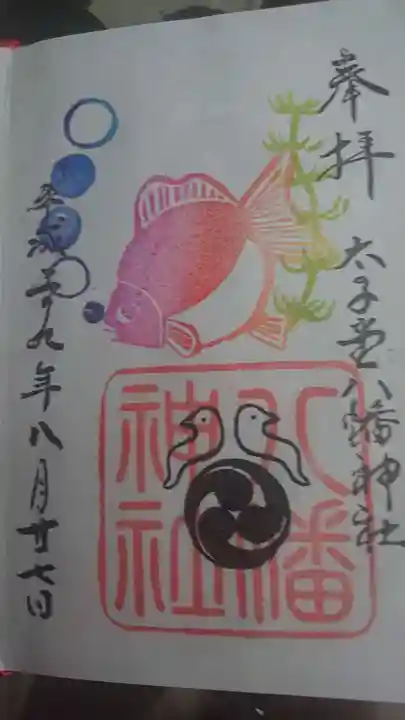 奉拝
太子堂八幡神社
八幡
神社
平成廿九年八月廿七日